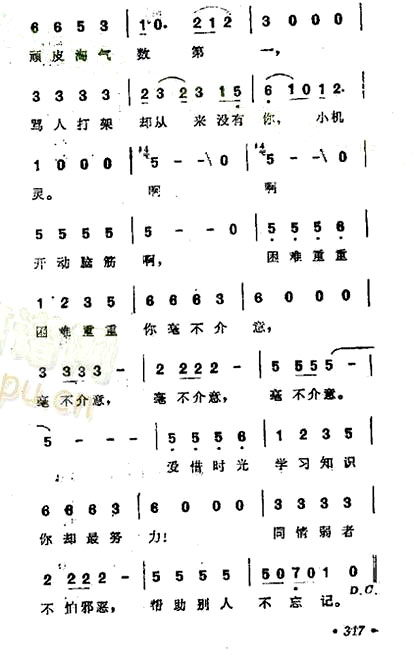 6 6 5 3 | 1 0. 0 2 1 2 | 3 0 0 0 |
顽皮淘气 数 第 一，
3 3 3 3 | 2 3 2 3 1 5 | 6 1 0 1 2. |
骂人打架 却从 来没有你， 小机
1 0 0 0 | 5 - - \0 | 5 - - \0 |
灵。 啊 啊
5 5 5 5 | 5 - - 0 | 5 5 5 6 |
开动脑筋 啊， 困难重重
1 2 3 5 | 6 6 6 3 | 6 0 0 0 |
困难重重 你毫不介 意，
3 3 3 3 - | 2 2 2 2 - | 5 5 5 5 - |
毫不介意， 毫不介意， 毫不介意。
5 - - - | 5 5 5 6 | 1 2 3 5 |
爱惜时光 学习知识
6 6 6 3 | 6 0 0 0 | 3 3 3 3 |
你却最努 力！ 同情弱者
2 2 2 2 - | 5 5 5 5 | 5 0 7 0 1 0 ‖
不怕邪恶， 帮助别人 不忘记。 D.C.
· 317 ·